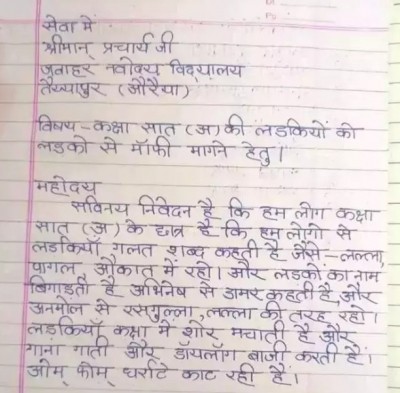 सेवा में
श्रीमान् प्रचार्य जी
जवाहर नवोदय विद्यालय
तैय्यापुर (औरैया)
विषय - कक्षा सात (अ) की लडकियों को
लडको से मॉफी मागने हेतु।
महोदय
सविनय निवेदन है कि हम लोग कक्षा
सात (अ) के छात्र है कि हम लोगो से
लडकियाँ गलत शब्द कहती है जैसे - लल्ला,
पागल औकात में रहो। और लडकों का नाम
बिगाड़ती है अभिनेष से डामर कहती है और
अनमोल से रसगुल्ला, लल्ला की तरह रहो।
लडकियाँ कक्षा में शोर मचाती है और
गाना गाती और डॉयलॉग बाजी करती है।
ओम् फोम् धर्राटे काट रही है।